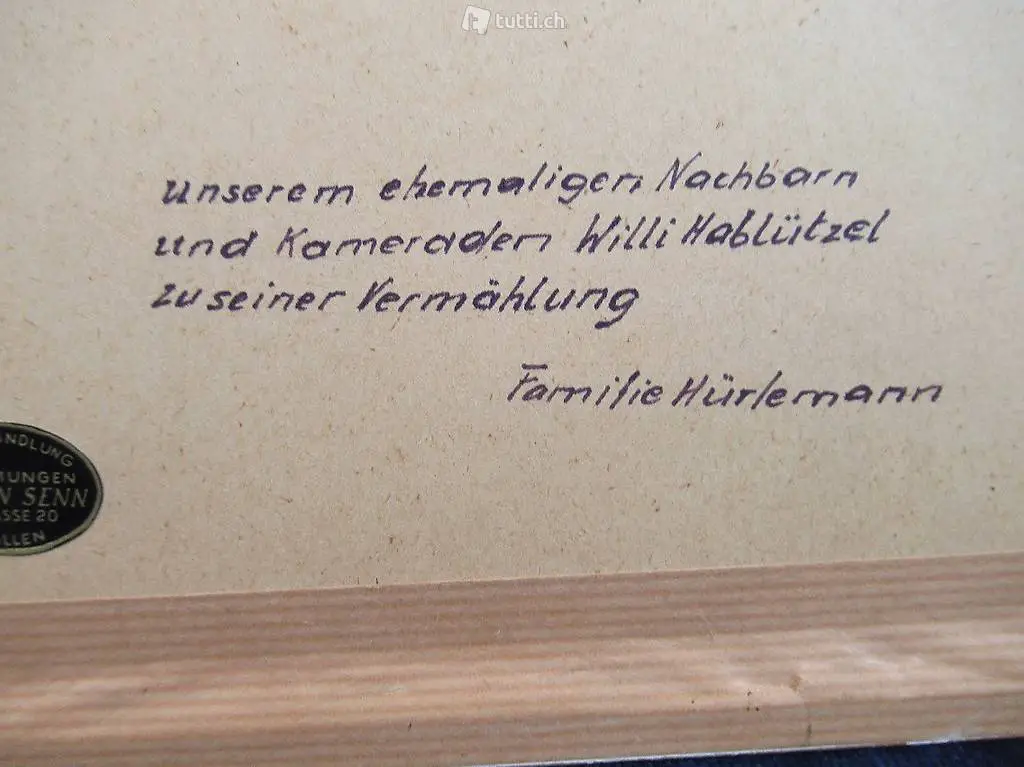 tutti.ch
unserem ehemaligen Nachbarn
und Kameraden Willi Hablützel
zu seiner Vermählung
Familie Hürlemann
NDLUNG
MUNGEN
N SENN
SSE 20
LLEN